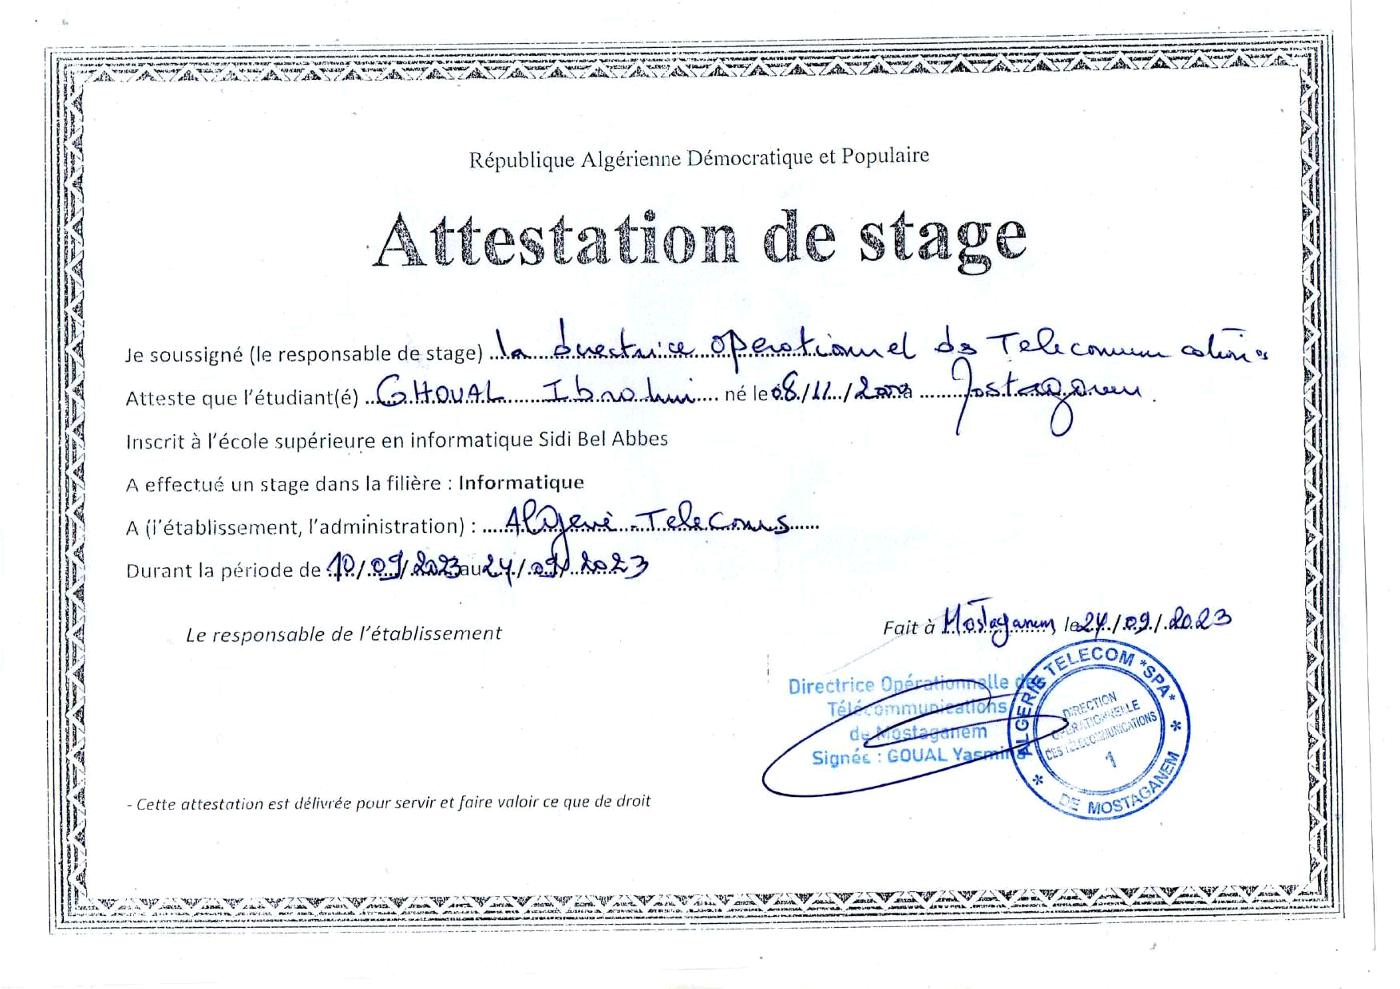 République Algérienne Démocratique et Populaire
Attestation de stage
Je soussigné (le responsable de stage) la directrice operationnel des Telecommunications
Atteste que l'étudiant(é) GHOUAL Ibrahim né le 08/11/ Mostaganem
Inscrit à l'école supérieure en informatique Sidi Bel Abbes
A effectué un stage dans la filière : Informatique
A (l'établissement, l'administration) : Algerie Telecoms
Durant la période de 10/09/2023 au 24/09/2023
Le responsable de l'établissement
Fait à Mostaganem le 24/09/2023
Directrice Opérationnelle des
Télécommunications
de Mostaganem
Signée : GOUAL Yasmina
ALGERIE TELECOM *SPA*
DIRECTION
OPERATIONNELLE
DES TELECOMMUNICATIONS
1
* DE MOSTAGANEM *
- Cette attestation est délivrée pour servir et faire valoir ce que de droit